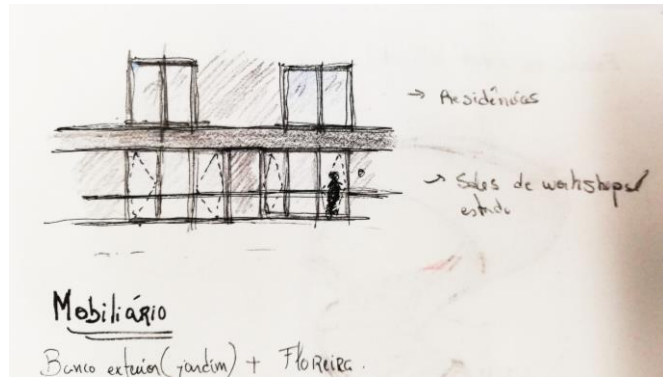 → Residências
→ Salas de workshops/
estudo
Mobiliário
Banco exterior (jardim) + Floreira.